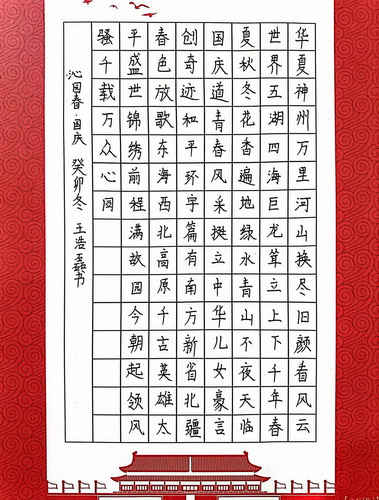 华夏神州万里河山换尽旧颜看风云
世界五湖四海巨龙耸立上下千年春
夏秋冬花香遍地绿水青山不夜天临
国庆道青春风采挺立中华儿女豪言
创奇迹和平环宇篇有南方新省北疆
春色放歌东海西北高原千古英雄太
平盛世锦绣前程满故园今朝起领风
骚千载万众心同
沁园春·国庆 癸卯冬 王浩书